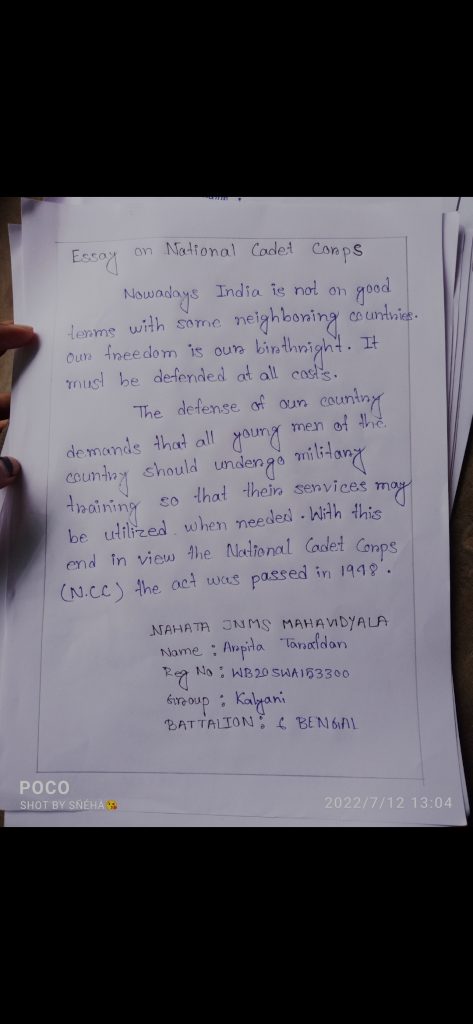 Essay on National Cadet Corps
Nowadays India is not on good
terms with some neighboring countries.
our freedom is our birthright. It
must be defended at all costs.
The defense of our country
demands that all young men of the
country should undergo military
training so that their services may
be utilized when needed. With this
end in view the National Cadet Corps
(N.CC) the act was passed in 1948.
NAHATA JNMS MAHAVIDYALA
Name : Arpita
Reg No : WB20SWA153300
Group : Kalyani
BATTALION: 6 BENGAL
POCO
SHOT BY SÑÉHA😘
2022/7/12 13:04